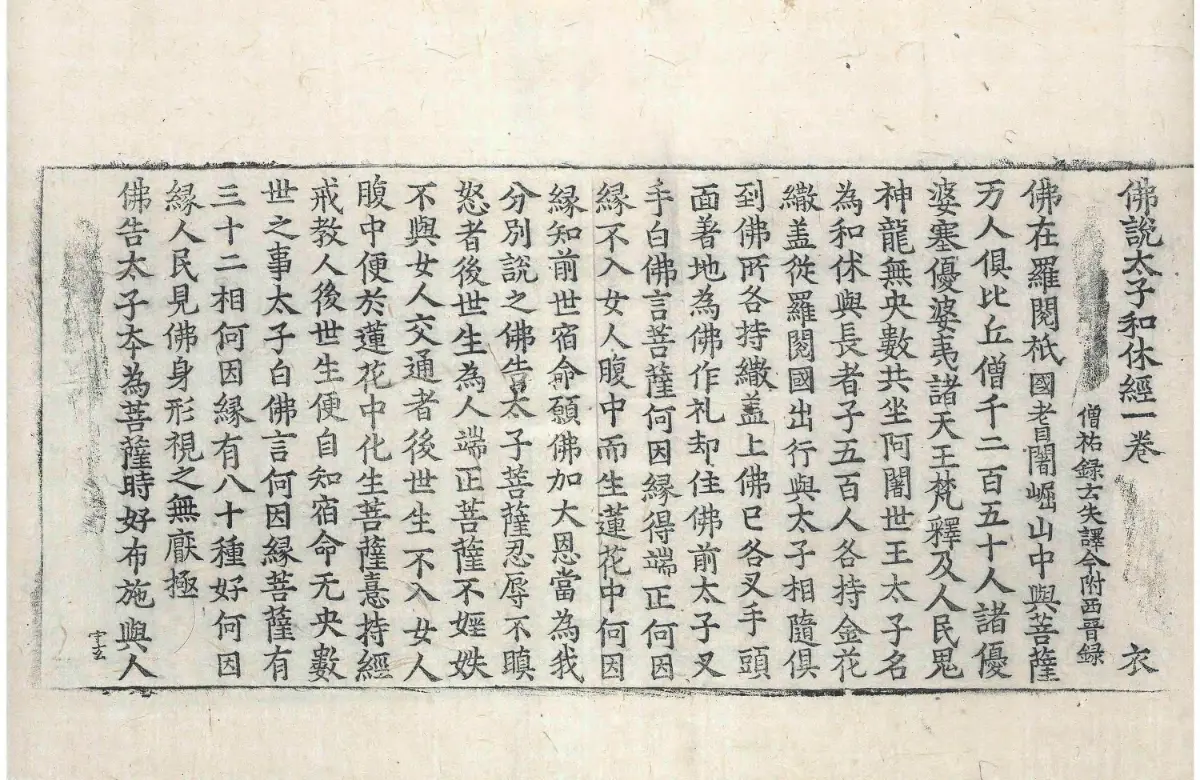 佛說太子和休經一卷 衣
僧祐錄云失譯今附西晉錄
佛在羅閱祇國耆闍崛山中與菩薩
万人俱比丘僧千二百五十人諸優
婆塞優婆夷諸天王梵釋及人民鬼
神龍無央數共坐阿闍世王太子名
為和休與長者子五百人各持金花
繖盖從羅閱國出行與太子相隨俱
到佛所各持繖盖上佛已各叉手頭
面著地為佛作礼却住佛前太子叉
手白佛言菩薩何因緣得端正何因
緣不入女人腹中而生蓮花中何因
緣知前世宿命願佛加大恩當為我
分別說之佛告太子菩薩忍辱不瞋
怒者後世生為人端正菩薩不婬妷
不與女人交通者後世生不入女人
腹中便於蓮花中化生菩薩憙持經
戒教人後世生便自知宿命无央數
世之事太子白佛言何因緣菩薩有
三十二相何因緣有八十種好何因
緣人民見佛身形視之無厭極
佛告太子夲為菩薩時好布施與人